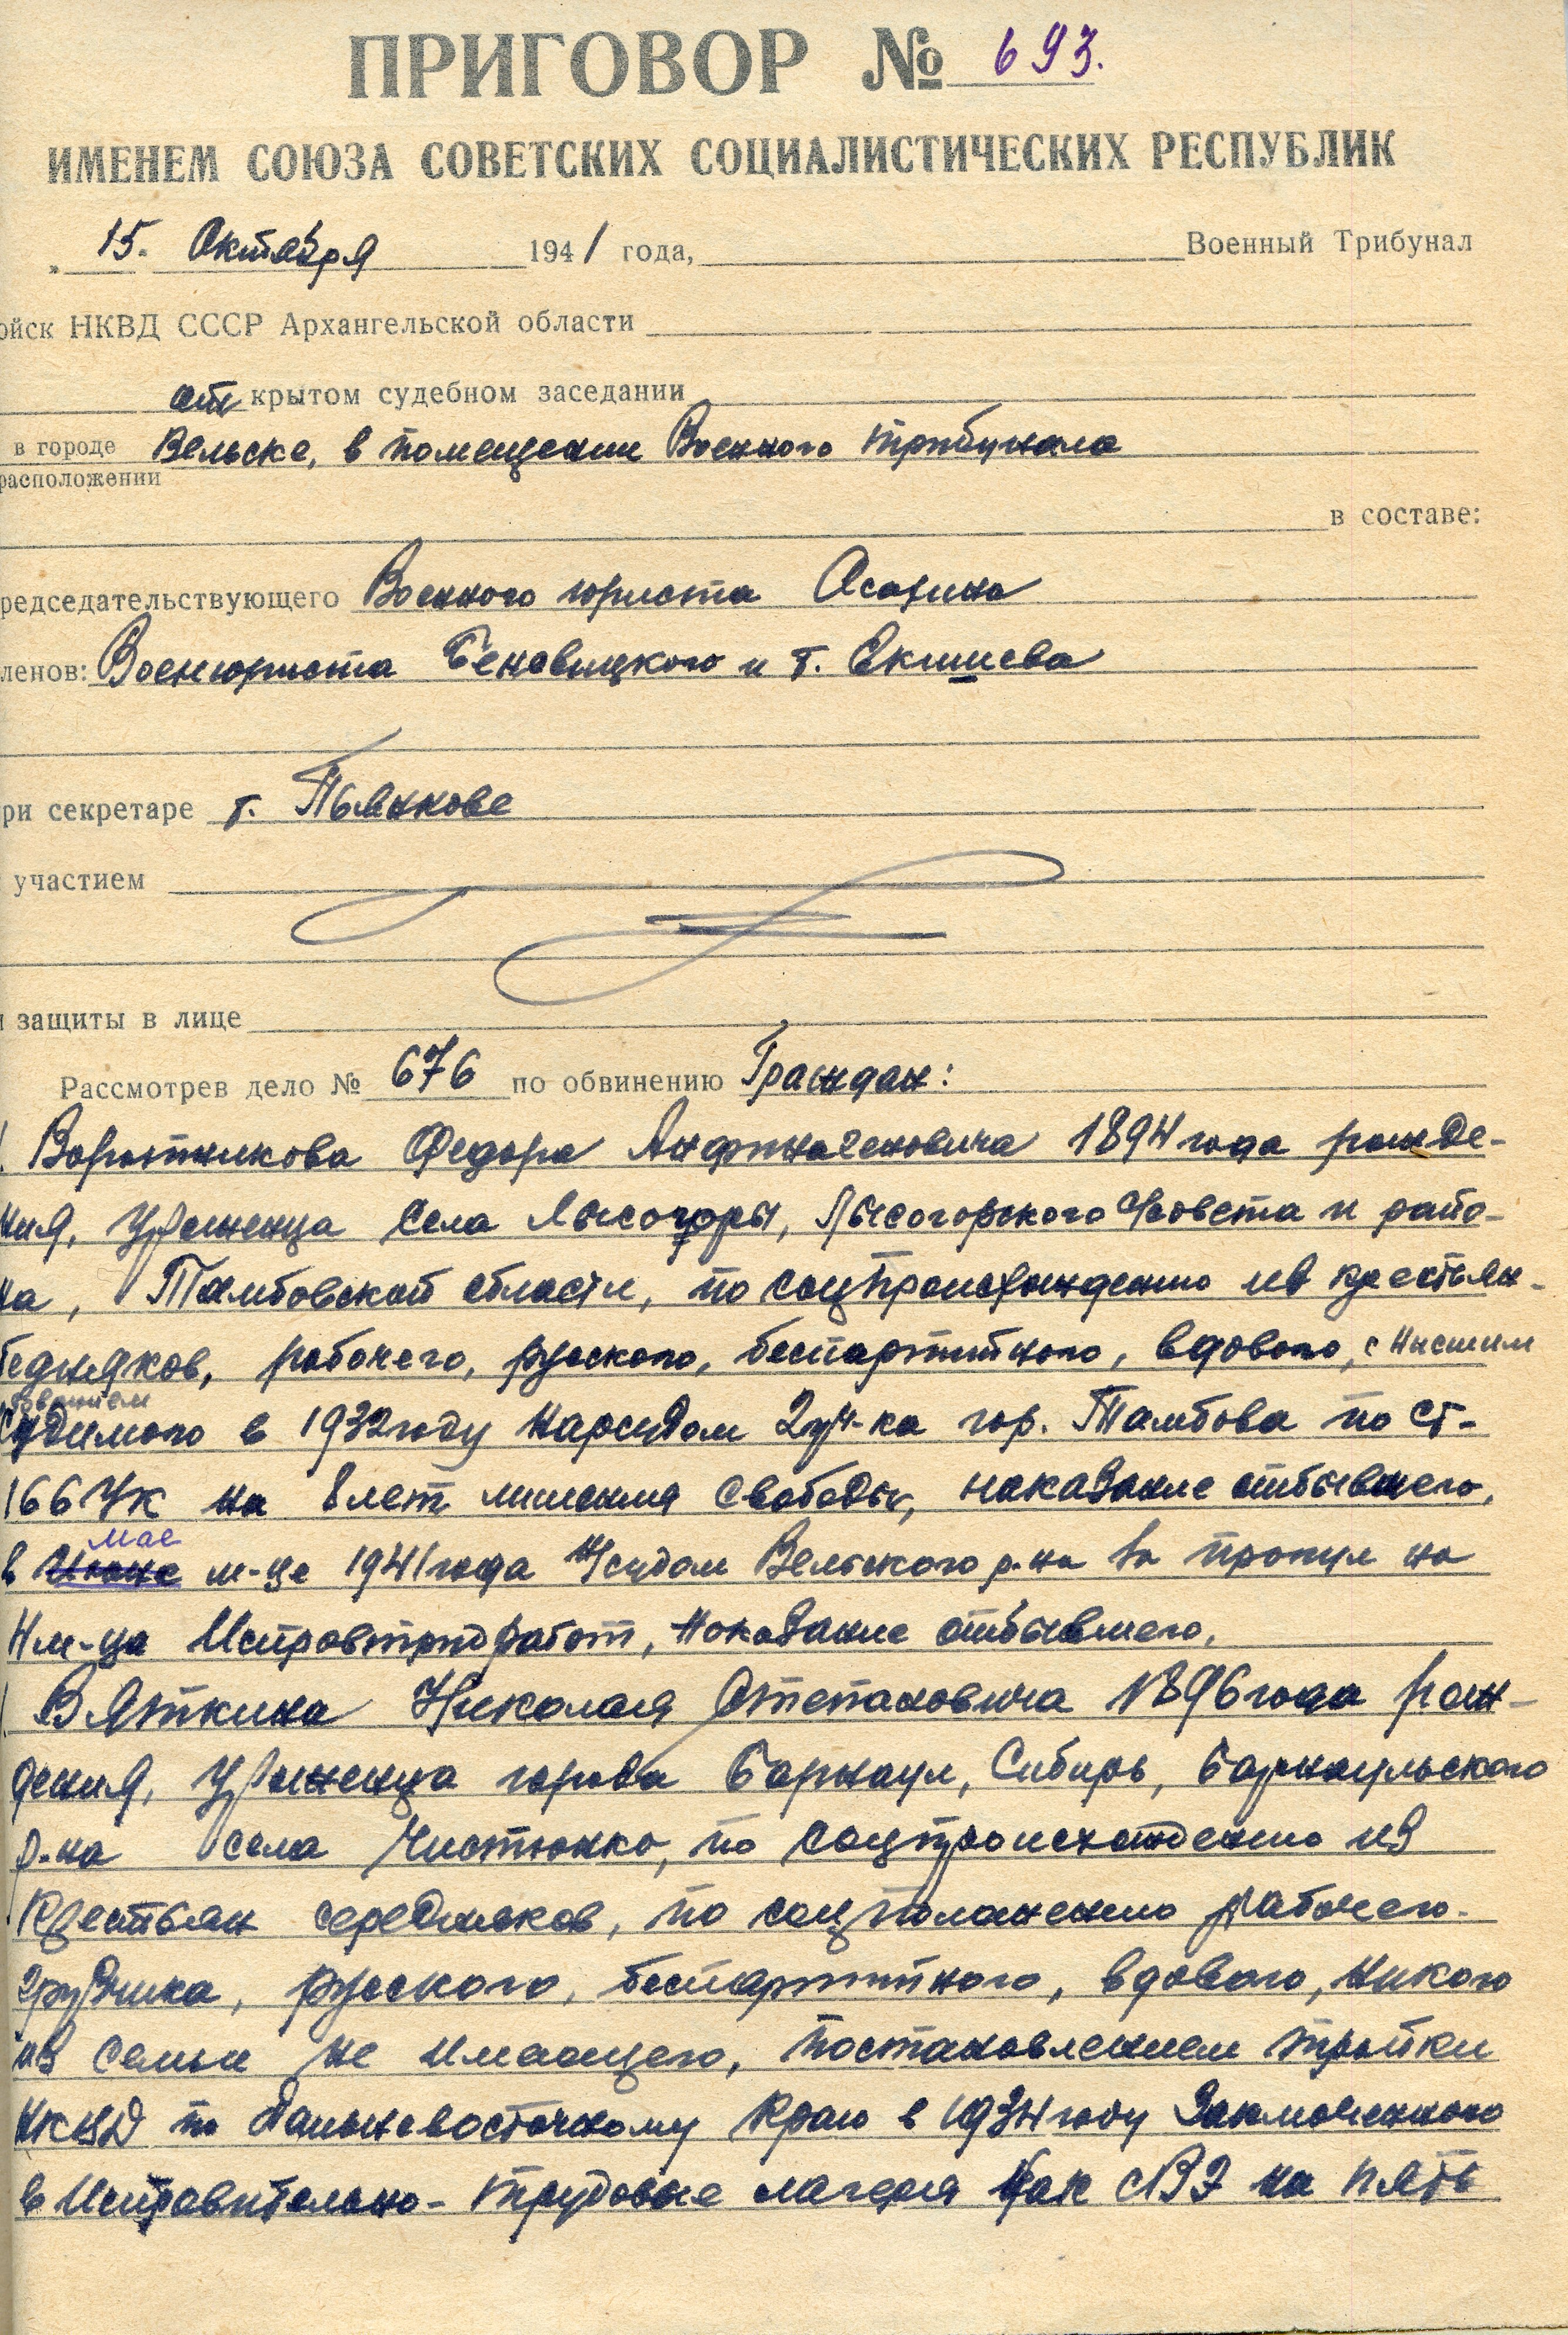 ПРИГОВОР № 693.
ИМЕНЕМ СОЮЗА СОВЕТСКИХ СОЦИАЛИСТИЧЕСКИХ РЕСПУБЛИК
„ 15. Октября 1941 года, Военный Трибунал
ойск НКВД СССР Архангельской области
открытом судебном заседании
в городе Вельске, в помещении Военного трибунала
расположении
в составе:
редседательствующего Военного юриста Асахина
ленов: Военюриста Беновицкого и т. Екишева
ри секретаре т. Пьянкове
участием
и защиты в лице
Рассмотрев дело № 676 по обвинению Граждан:
Воротникова Федора 1894 года рожде-
ния, Уроженца села Лысогоры, Лысогорского с/совета и райо-
на, Тамбовской области, по соцпроисхождению из крестьян-
бедняков, рабочего, руского, беспартийного, вдового, с низшим
Судимого в 1932 году Нарсудом 2 уч-ка гор. Тамбова по ст-
166 УК на 8 лет лишения свободы, наказание отбывшего,
мае
в Июне м-це 1941 года Н/судом Вельского р-на за прогул на
4 м-ца Исправтрудработ, наказание отбывшего.
Вяткина Николая Степановича 1896 года рож-
дения, Уроженца города Барнаул, Сибирь, Барнаульского
р-на села Чистюнко, по соцпроисхождению из
Крестьян середняков, по соцположению рабочего-
грузчика, руского, беспартийного, вдового, никого
из семьи не имеющего, постановлением тройки
НКВД по Дальневосточному Краю в 1934 году Заключенного
в Исправительно-трудовые лагеря как СВЭ на пять